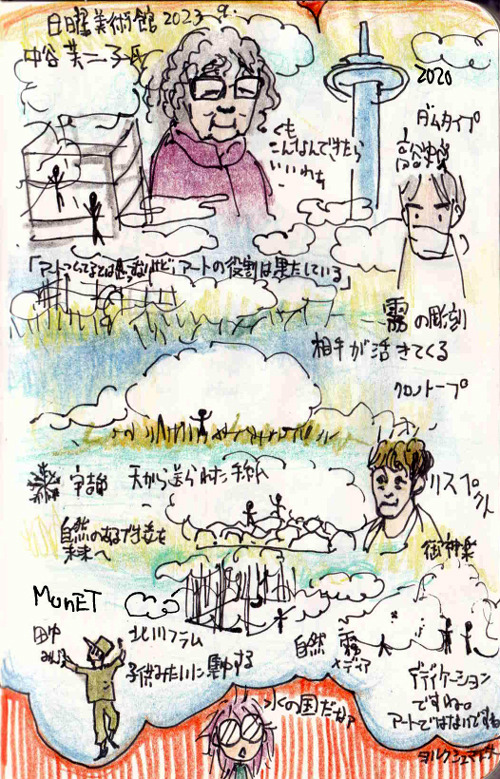 日曜美術館 2023 9.
中谷芙二子氏
2020
ダムタイプ
高谷史郎
くも
こんなんできたら
いいわね
「アートつくってるとは思ってないけど、アートの役割は果たしている」
霧の彫刻
相手が活きてくる
クロノトープ
宇吉郎
天から送られた手紙
リスペクト
自然のあるがままを
未来へ
御神楽
MonET
田中
みん
北川フラム
子供みたいに集中する
自然 霧
メディア
デディケーション
ですね。
アートではないです
水の国だなァ